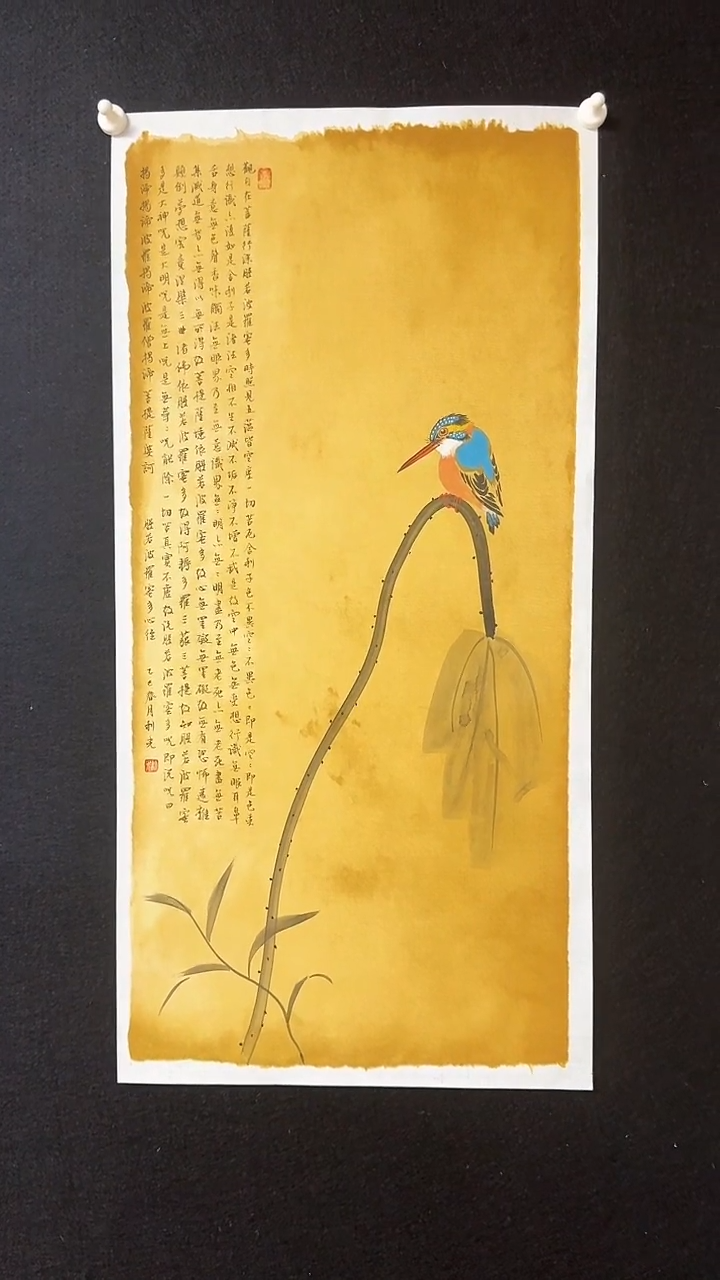 觀自在菩薩行深般若波羅蜜多時照見五蘊皆空度一切苦厄舍利子色不異空〻不異色〻即是空〻即是色受
想行識亦復如是舍利子是諸法空相不生不滅不垢不淨不增不減是故空中無色無受想行識無眼耳鼻
舌身意無色聲香味觸法無眼界乃至無意識界無〻明亦無〻明盡乃至無老死亦無老死盡無苦
集滅道無智亦無得以無所得故菩提薩埵依般若波羅蜜多故心無罣礙無罣礙故無有恐怖遠離
顛倒夢想究竟涅槃三世諸佛依般若波羅蜜多故得阿耨多羅三藐三菩提故知般若波羅蜜
多是大神咒是大明咒是無上咒是無等〻咒能除一切苦真實不虛故說般若波羅蜜多咒即說咒曰
揭諦揭諦波羅揭諦波羅僧揭諦菩提薩婆訶 般若波羅蜜多心經 乙巳春月利光